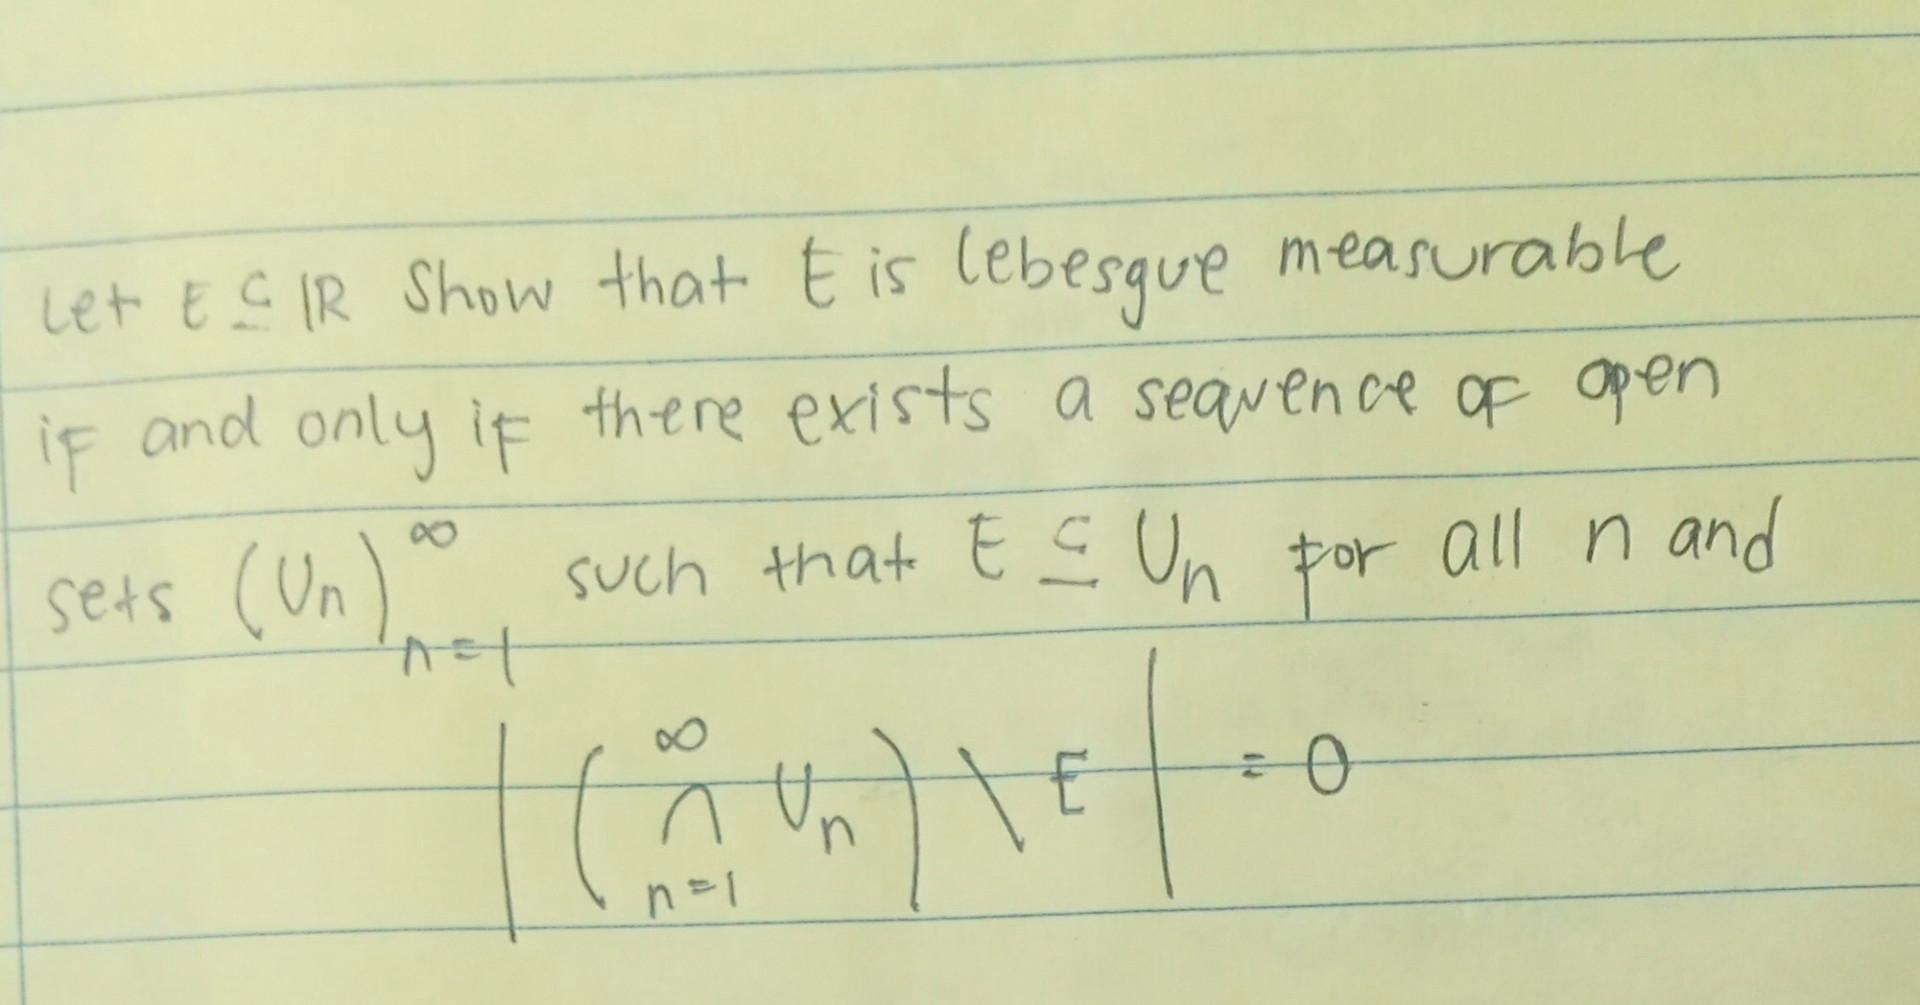 Let E ⊆ ℝ Show that E is lebesgue measurable
if and only if there exists a sequence of open
sets (Uₙ)^∞_{n=1} such that E ⊆ Uₙ for all n and
|(∞⋂n=1 Uₙ) \ E| = 0